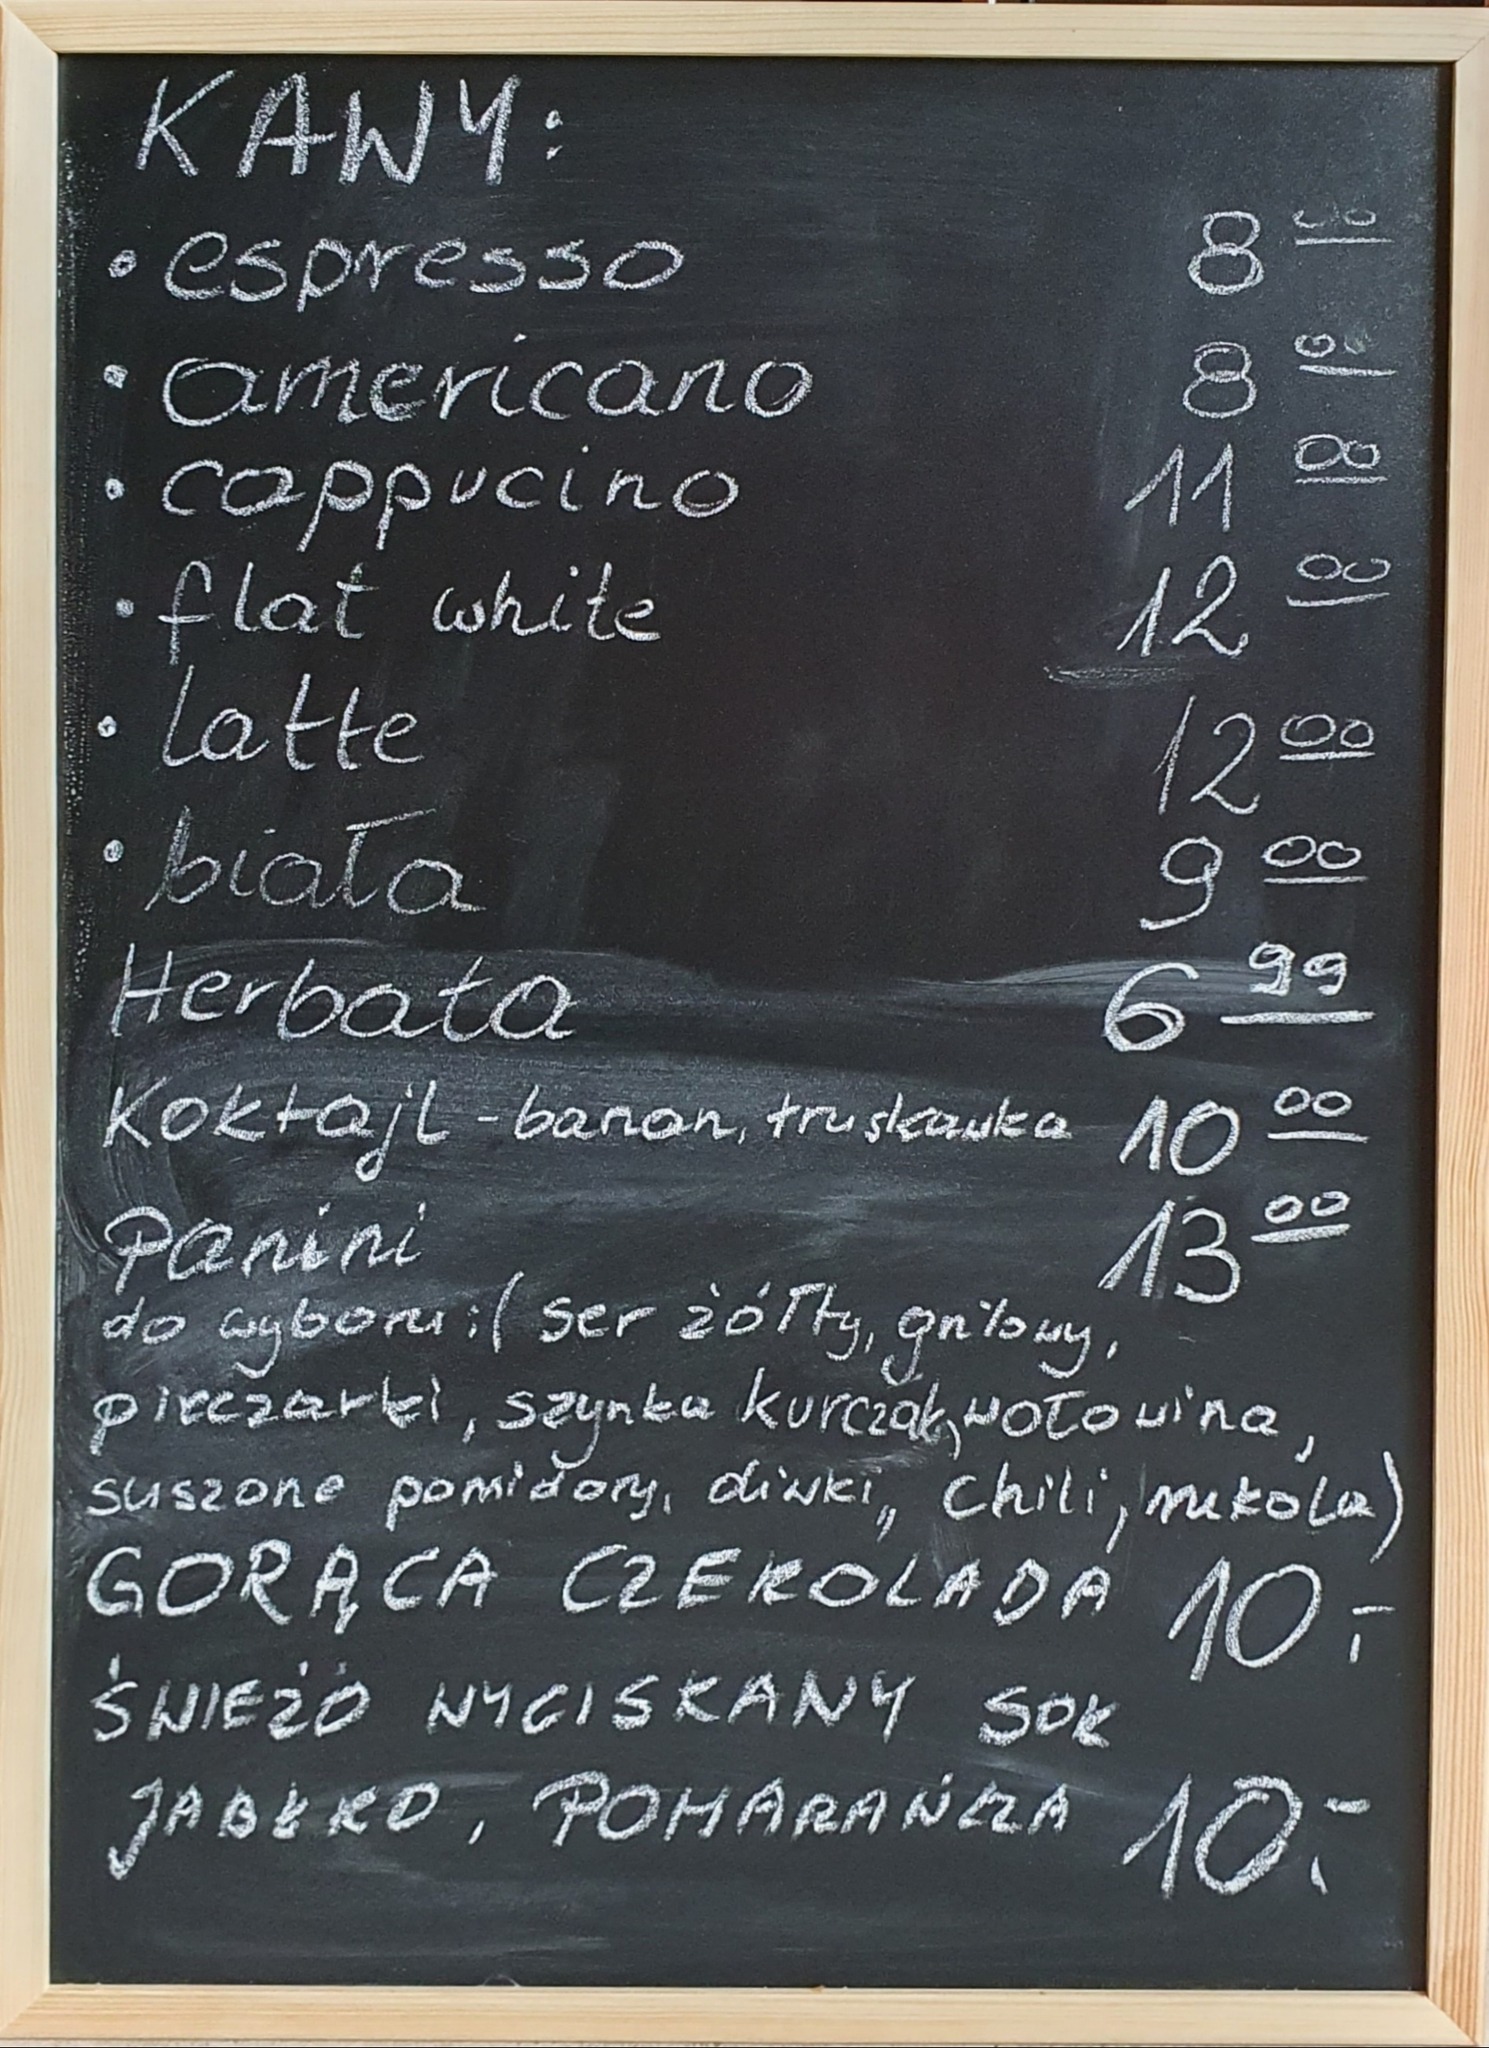 KAWY:
• espresso 8 00
• americano 8 00
• cappucino 11 00
• flat white 12 00
• latte 12 00
• biała 9 00
Herbata 6 99
Koktajl - banan, truskawka 10 00
Panini 13 00
do wyboru:( ser żółty, gnilowy,
pieczarki, szynka kurczak, wołowina,
suszone pomidory, oliwki,, chili, rukola)
GORĄCA CZEKOLADA 10,-
ŚWIEŻO WYCISKANY SOK
JABŁKO, POMARAŃCZA 10,-